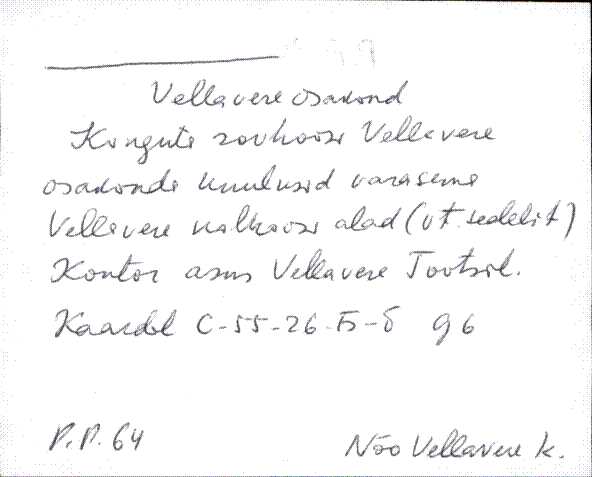 Vellavere osakond
Konguta sovhoosi Vellavere
osakonda kuulusid varasema
Vellavere kolhoosi alad (vt. sedelit)
Kontor asus Vellavere Tootsil.
Kaardil C-55-26-Б-б g6
P.P. 64
Nõo Vellavere k.